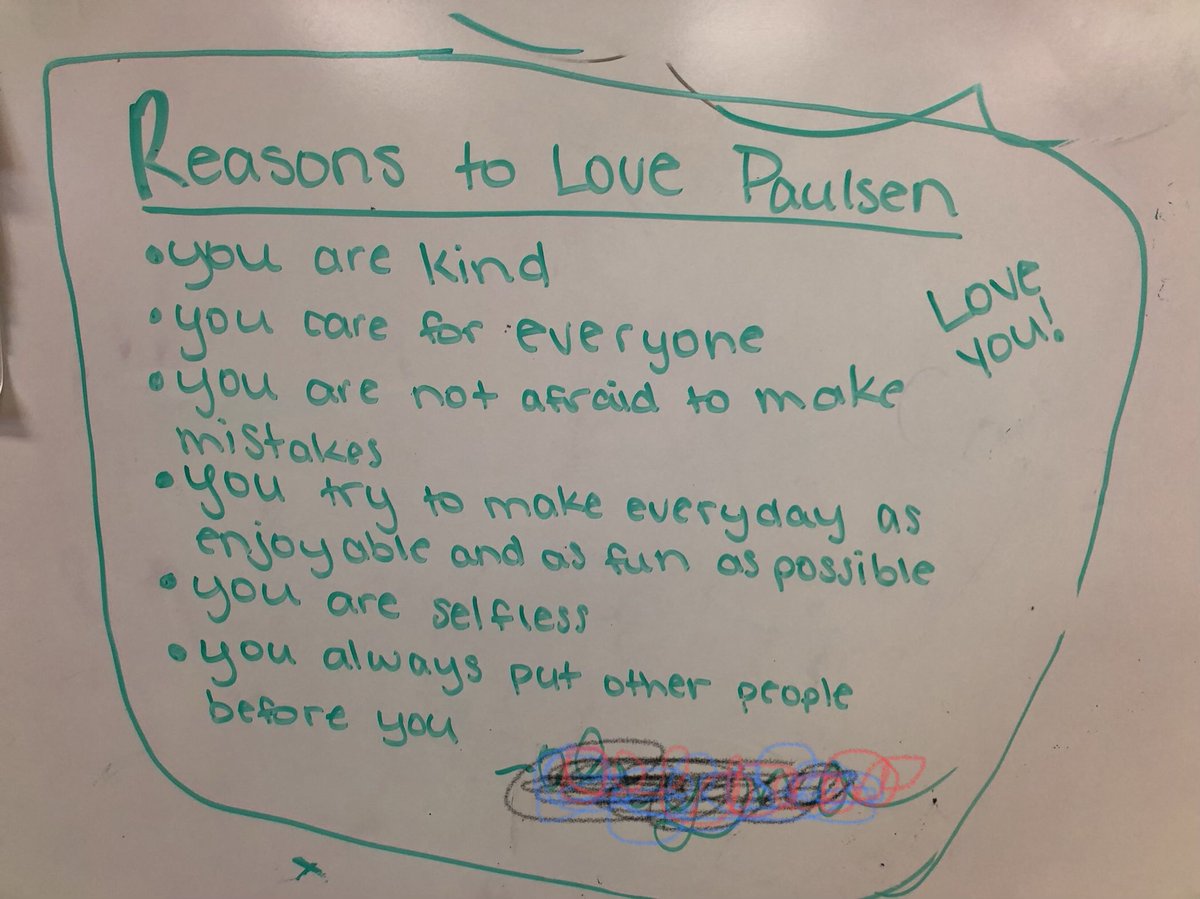 Reasons to Love Paulsen
• you are kind
• you care for everyone
Love
you!
• you are not afraid to make
mistakes
• you try to make everyday as
enjoyable and as fun as possible
• you are selfless
• you always put other people
before you